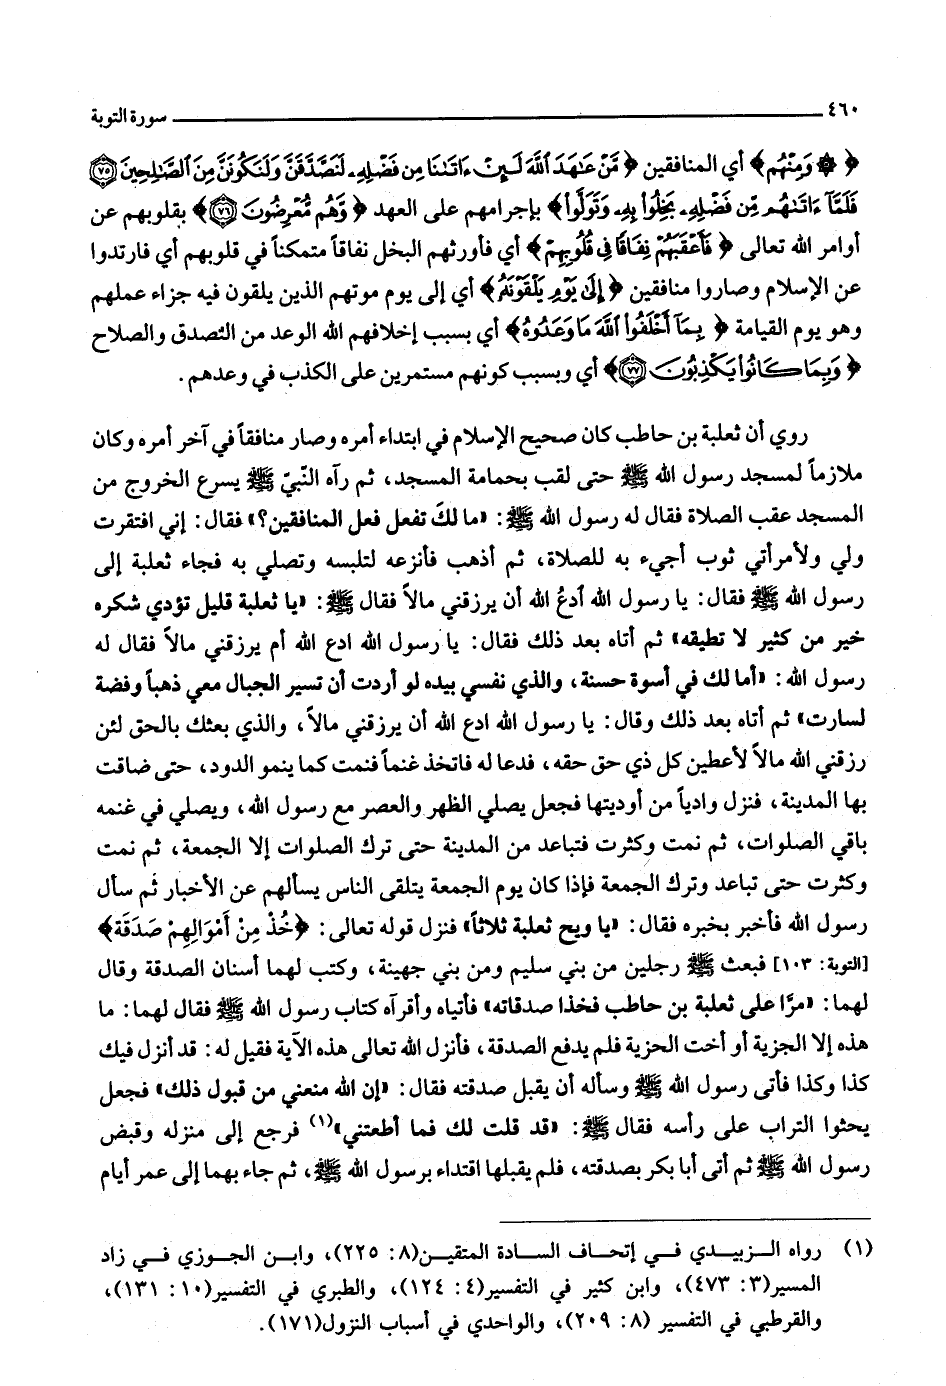 ٤٦٠ سورة التوبة
﴿ ۞ وَمِنْهُم﴾ أي المنافقين ﴿مَّنْ عَاهَدَ اللَّهَ لَئِنْ ءَاتَانَا مِن فَضْلِهِ لَنَصَّدَّقَنَّ وَلَنَكُونَنَّ مِنَ الصَّالِحِينَ ﴿٧٥﴾
فَلَمَّا ءَاتَاهُم مِّن فَضْلِهِ بَخِلُوا بِهِ وَتَوَلَّوا﴾ بإجرامهم على العهد ﴿وَّهُم مُّعْرِضُونَ ﴿٧٦﴾﴾ بقلوبهم عن
أوامر الله تعالى ﴿فَأَعْقَبَهُمْ نِفَاقًا فِي قُلُوبِهِمْ﴾ أي فأورثهم البخل نفاقاً متمكناً في قلوبهم أي فارتدوا
عن الإسلام وصاروا منافقين ﴿إِلَى يَوْمِ يَلْقَوْنَهُ﴾ أي إلى يوم موتهم الذين يلقون فيه جزاء عملهم
وهو يوم القيامة ﴿بِمَا أَخْلَفُوا اللَّهَ مَا وَعَدُوهُ﴾ أي بسبب إخلافهم الله الوعد من التصدق والصلاح
﴿وَبِمَا كَانُوا يَكْذِبُونَ ﴿٧٧﴾﴾ أي وبسبب كونهم مستمرين على الكذب في وعدهم.
روي أن ثعلبة بن حاطب كان صحيح الإسلام في ابتداء أمره وصار منافقاً في آخر أمره وكان
ملازماً لمسجد رسول الله ﷺ حتى لقب بحمامة المسجد، ثم رآه النّبيّ ﷺ يسرع الخروج من
المسجد عقب الصلاة فقال له رسول الله ﷺ: «ما لكَ تفعل فعل المنافقين؟» فقال: إني افتقرت
ولي ولأمرأتي ثوب أجيء به للصلاة، ثم أذهب فأنزعه لتلبسه وتصلي به فجاء ثعلبة إلى
رسول الله ﷺ فقال: يا رسول الله أدعُ الله أن يرزقني مالاً فقال ﷺ: «يا ثعلبة قليل تؤدي شكره
خير من كثير لا تطيقه» ثم أتاه بعد ذلك فقال: يا رسول الله ادع الله أم يرزقني مالاً فقال له
رسول الله: «أما لك في أسوة حسنة، والذي نفسي بيده لو أردت أن تسير الجبال معي ذهباً وفضة
لسارت» ثم أتاه بعد ذلك وقال: يا رسول الله ادع الله أن يرزقني مالاً، والذي بعثك بالحق لئن
رزقني الله مالاً لأعطين كل ذي حق حقه، فدعا له فاتخذ غنماً فنمت كما ينمو الدود، حتى ضاقت
بها المدينة، فنزل وادياً من أوديتها فجعل يصلي الظهر والعصر مع رسول الله، ويصلي في غنمه
باقي الصلوات، ثم نمت وكثرت فتباعد من المدينة حتى ترك الصلوات إلا الجمعة، ثم نمت
وكثرت حتى تباعد وترك الجمعة فإذا كان يوم الجمعة يتلقى الناس يسألهم عن الأخبار ثم سأل
رسول الله فأخبر بخبره فقال: «يا ويح ثعلبة ثلاثاً» فنزل قوله تعالى: ﴿خُذْ مِنْ أَمْوَالِهِمْ صَدَقَةً﴾
[التوبة: ١٠٣] فبعث ﷺ رجلين من بني سليم ومن بني جهينة، وكتب لهما أسنان الصدقة وقال
لهما: «مرّا على ثعلبة بن حاطب فخذا صدقاته» فأتياه وأقرآه كتاب رسول الله ﷺ فقال لهما: ما
هذه إلا الجزية أو أخت الجزية فلم يدفع الصدقة، فأنزل الله تعالى هذه الآية فقيل له: قد أنزل فيك
كذا وكذا فأتى رسول الله ﷺ وسأله أن يقبل صدقته فقال: «إن الله منعني من قبول ذلك» فجعل
يحثوا التراب على رأسه فقال ﷺ: «قد قلت لك فما أطعتني»(١) فرجع إلى منزله وقبض
رسول الله ﷺ ثم أتى أبا بكر بصدقته، فلم يقبلها اقتداء برسول الله ﷺ، ثم جاء بهما إلى عمر أيام
(١) رواه الزبيدي في إتحاف السادة المتقين(٨: ٢٢٥)، وابن الجوزي في زاد
المسير(٣: ٤٧٣)، وابن كثير في التفسير(٤: ١٢٤)، والطبري في التفسير(١٠: ١٣١)،
والقرطبي في التفسير (٨: ٢٠٩)، والواحدي في أسباب النزول(١٧١).